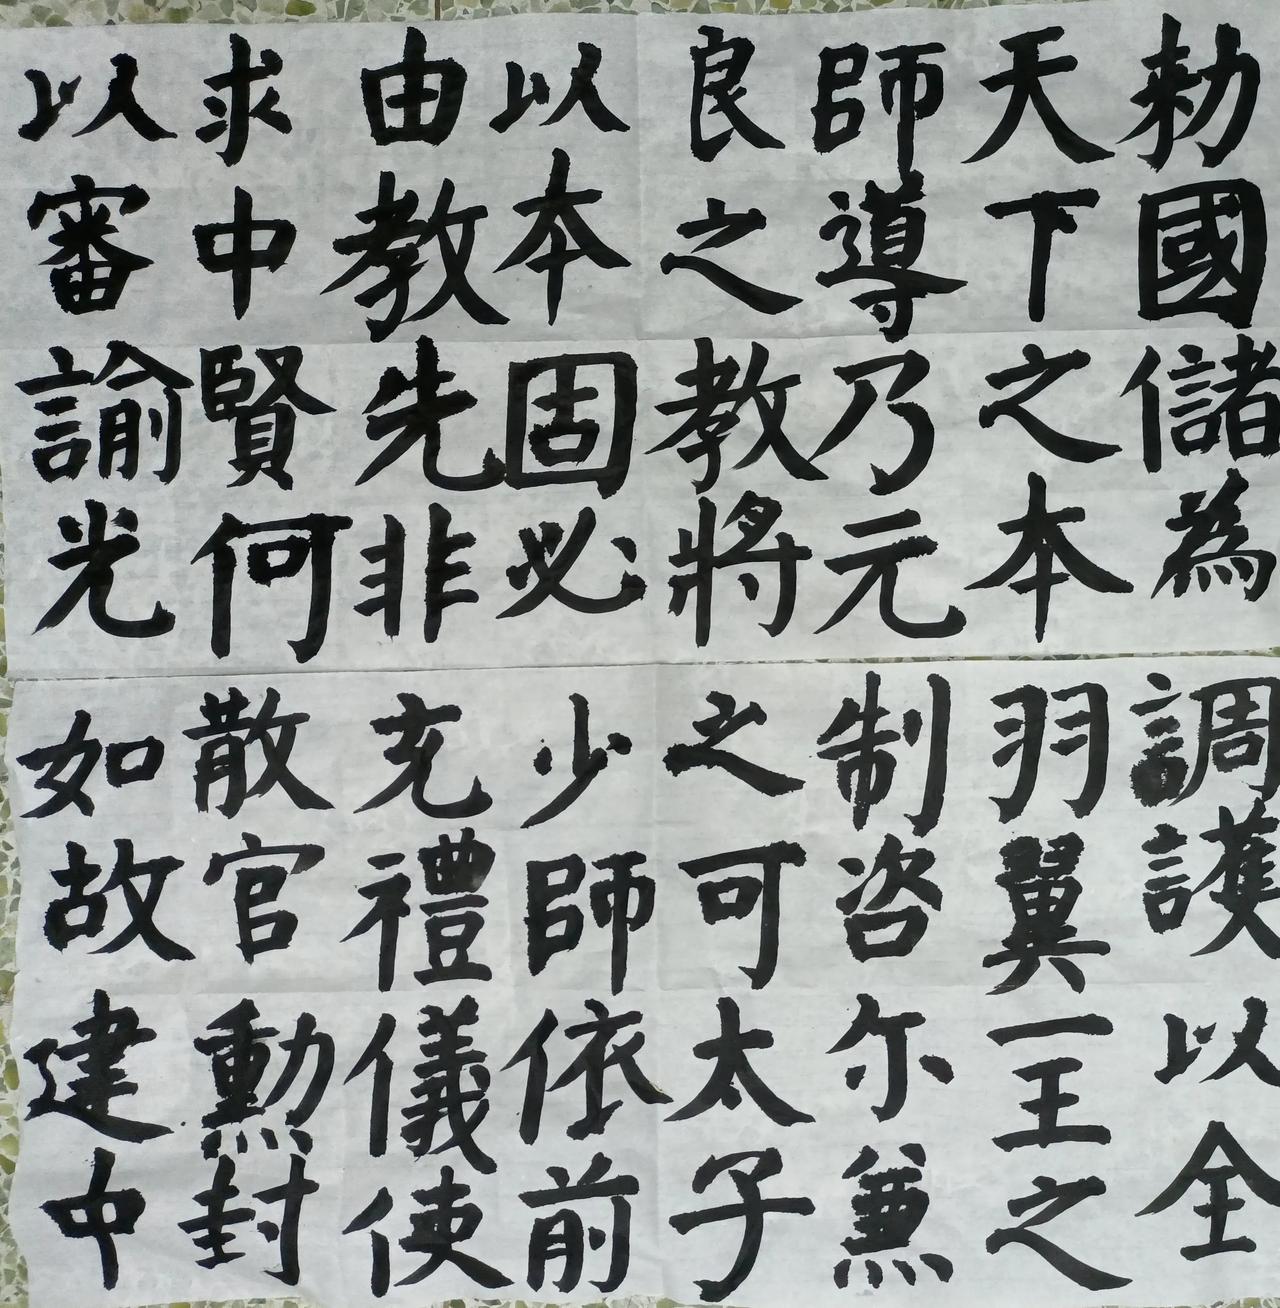 勑國儲為
天下之本
師導乃元
良之教將
以本固必
由教先非
求中賢何
以審諭光
調護以全
羽翼一王之
制咨尔兼
之可太子
少師依前
充禮儀使
散官勳封
如故建中